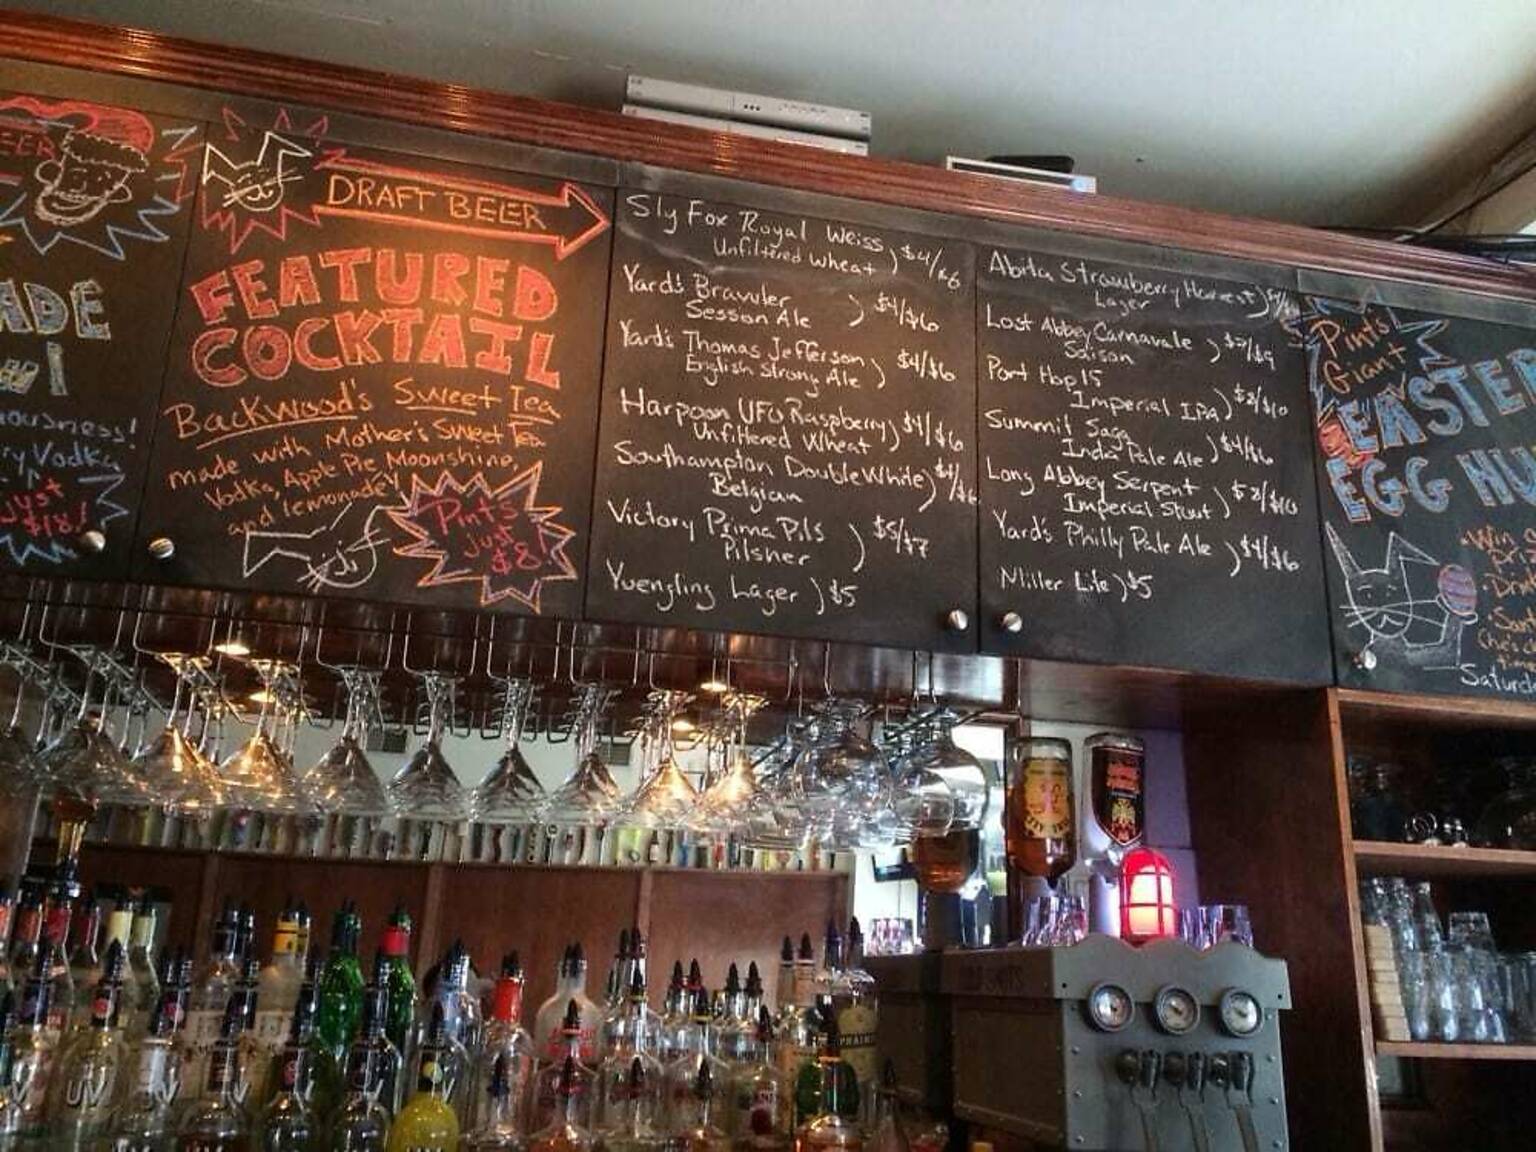 DRAFT BEER
FEATURED
COCKTAIL
Backwood's Sweet Tea
made with Mother's Sweet Tea
Vodka, Apple Pie Moonshine,
and lemonade!
Pints
just
$8!
ry Vodka
just
$18!
Sly Fox Royal Weiss
Unfiltered Wheat ) $4/$6
Yard's Bravuler
Sesson Ale ) $4/$6
Yard's Thomas Jefferson
English Strong Ale ) $4/$6
Harpoon UFO Raspberry
Unfiltered Wheat ) $4/$6
Southampton Double White
Belgian ) $4/$6
Victory Prima Pils
Pilsner ) $5/$7
Yuengling Lager ) $5
Abita Strawberry Harvest
Lager
Lost Abbey Carnavale
Saison
Port Hop 15
Imperial IPA ) $8/$10
Summit Saga
India Pale Ale ) $4/$6
Long Abbey Serpent
Imperial Stout ) $8/$10
Yard's Philly Pale Ale ) $4/$6
Miller Lite ) $5
Pint's
Giant
EASTER
EGG HU
Win
Saturd
UV